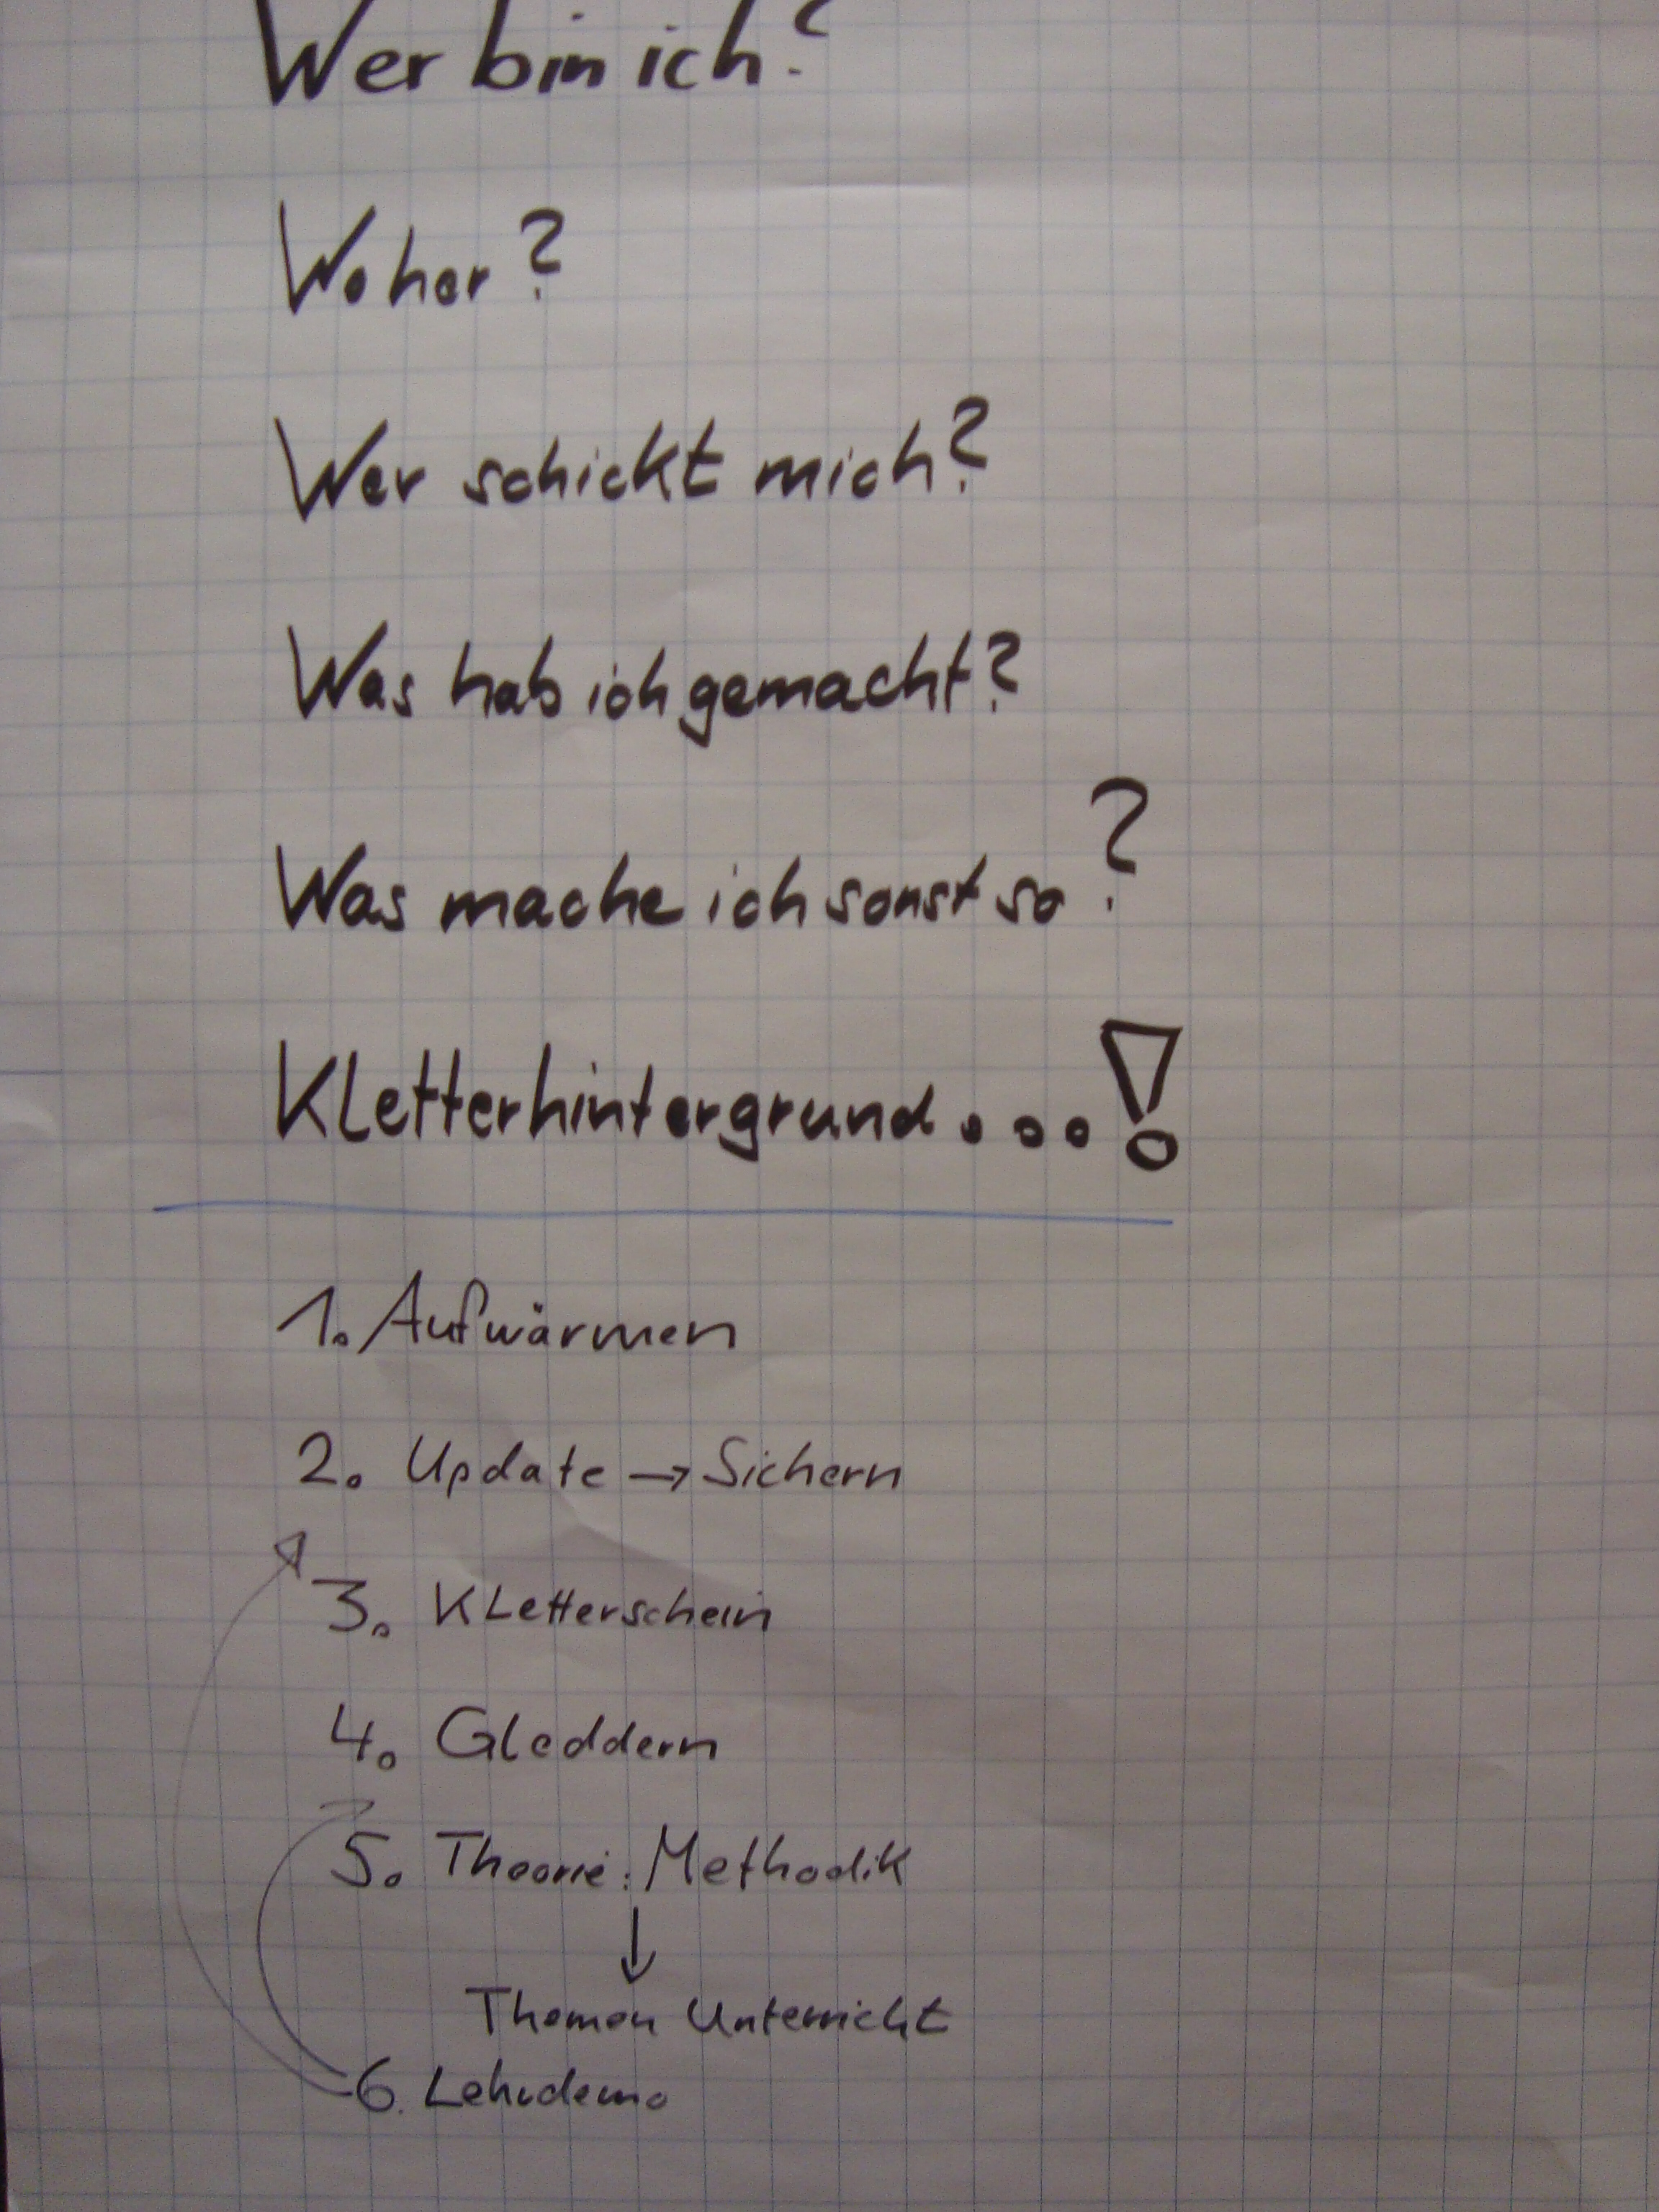 Wer bin ich?
Woher?
Wer schickt mich?
Was hab ich gemacht?
Was mache ich sonst so?
Kletterhintergrund...!
1. Aufwärmen
2. Update → Sichern
3. Kletterschein
4. Gleddern
5. Theorie: Methodik
↓
Themen Unterricht
6. Lehrdemo